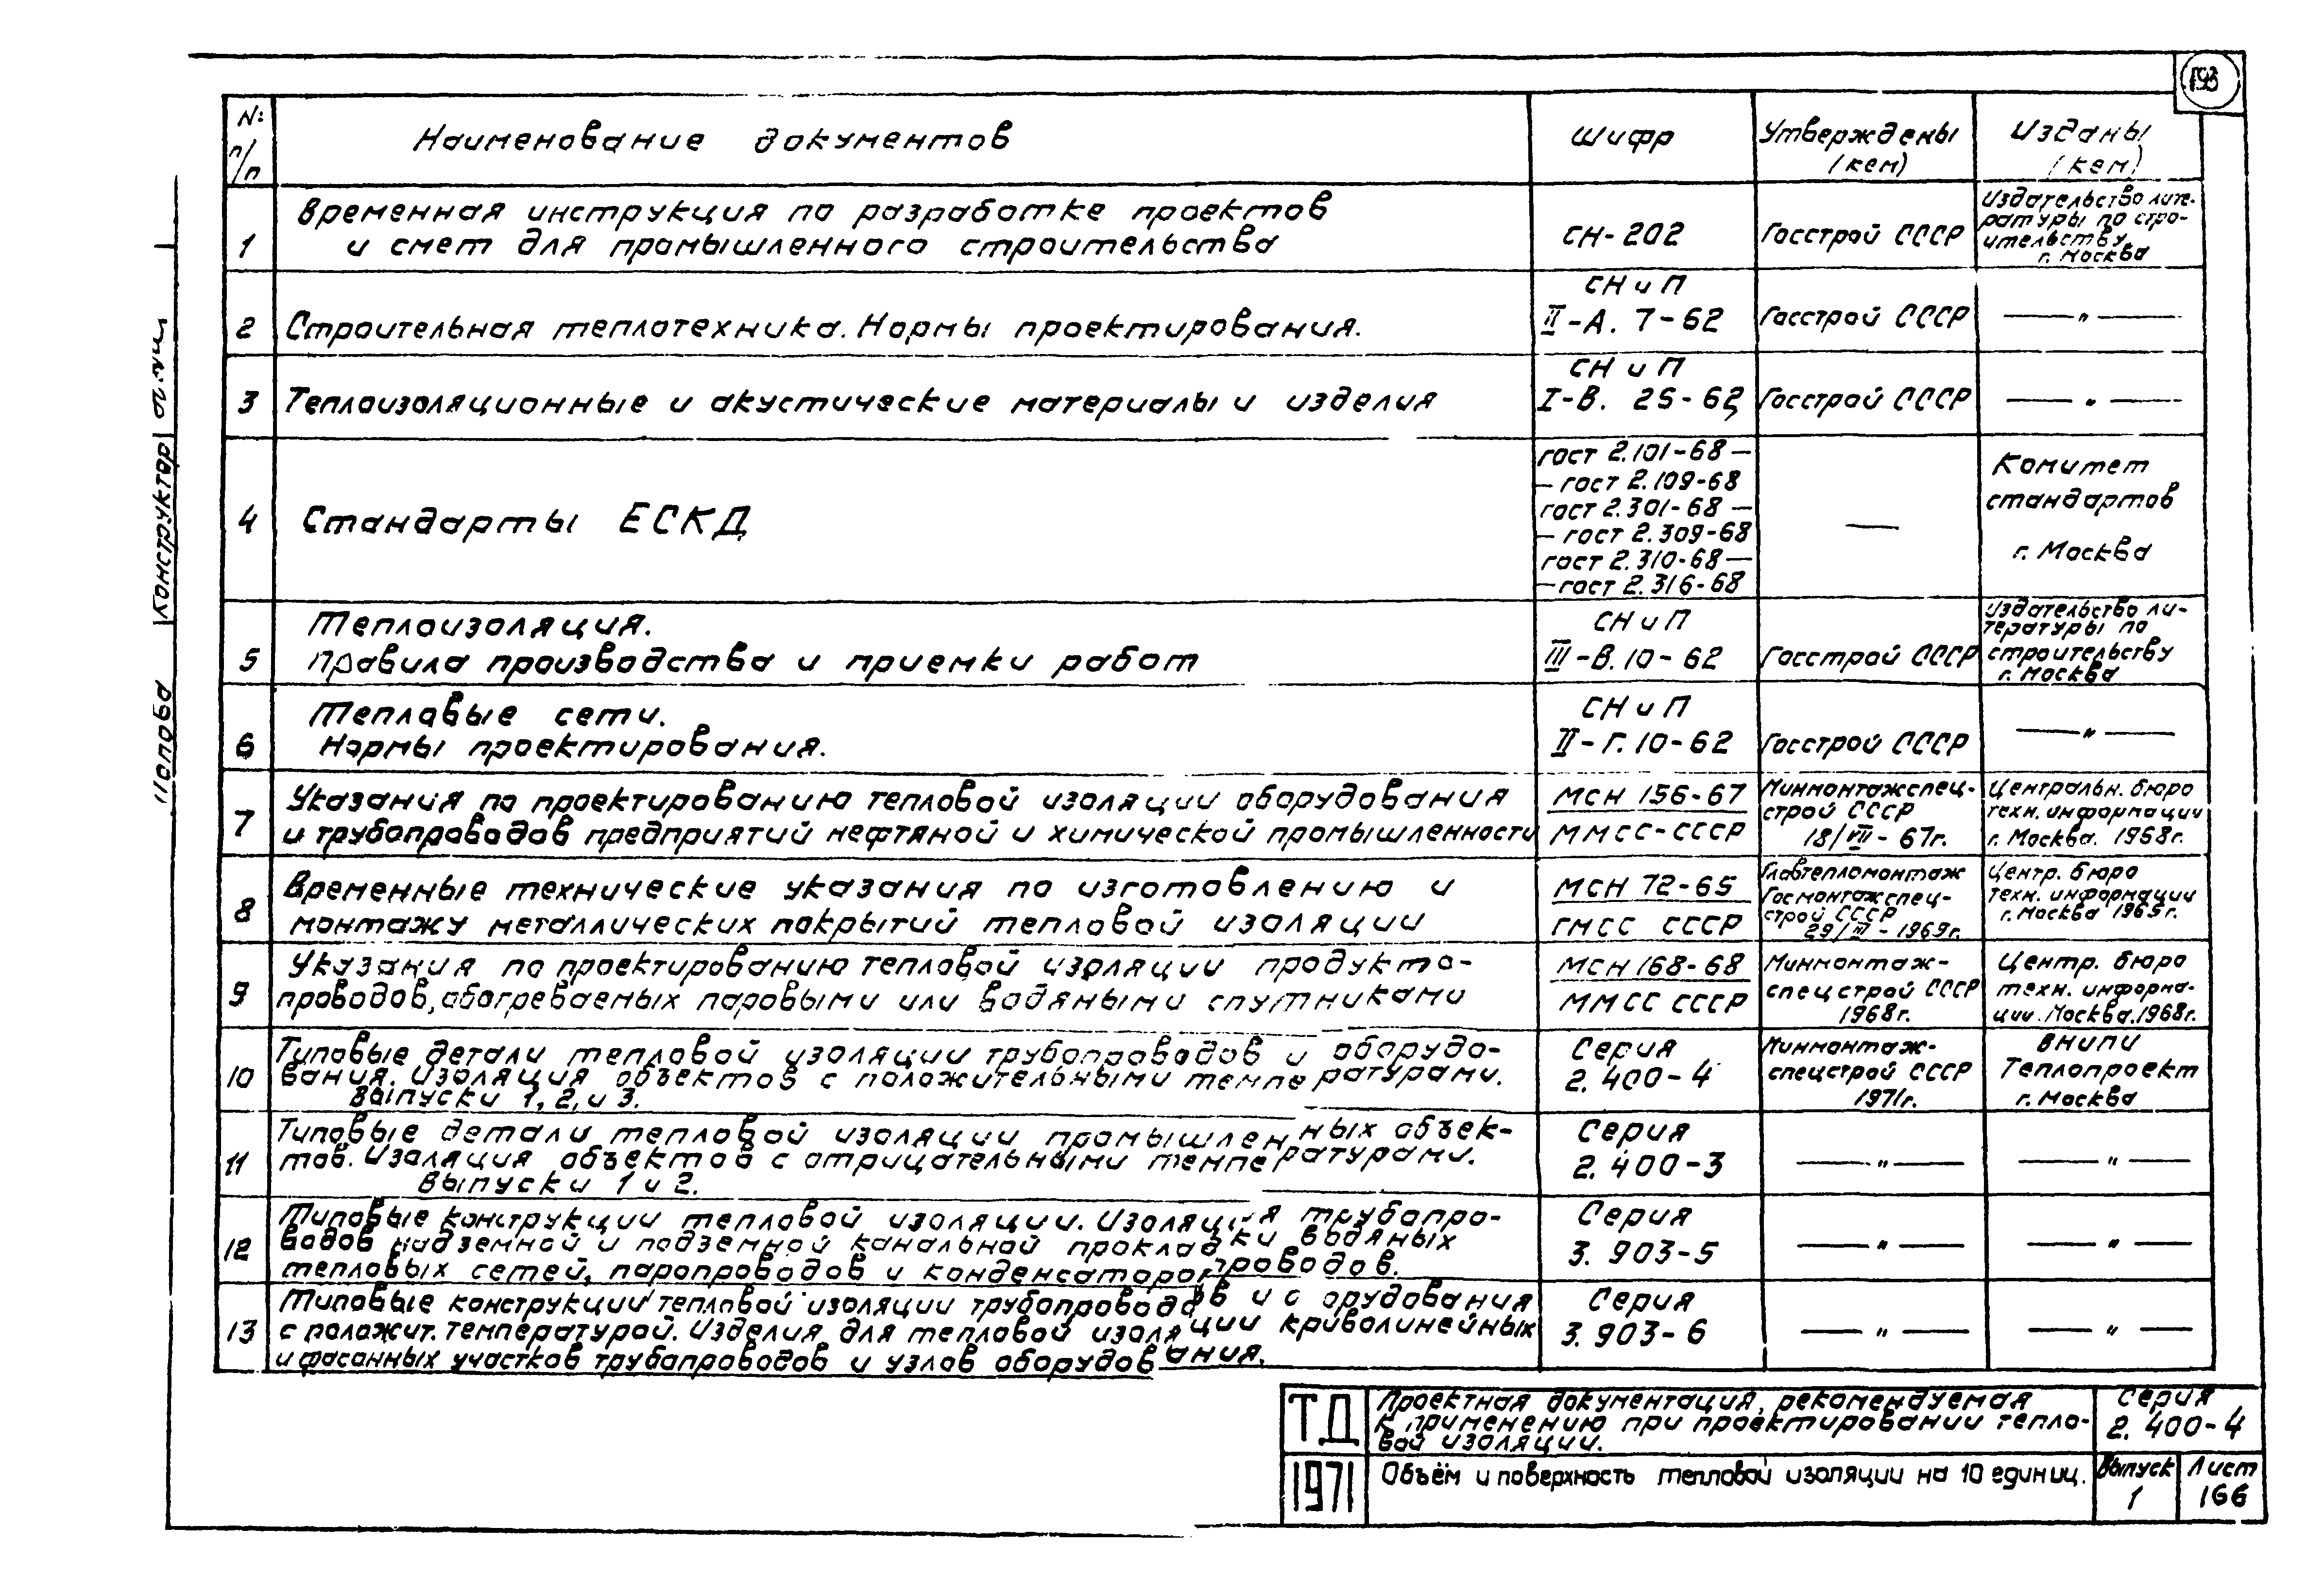 193
№: п/п
Наименование документов
Шифр
Утверждены (кем)
Изданы (кем)
1
Временная инструкция по разработке проектов
и смет для промышленного строительства
СН-202
Госстрой СССР
Издательство лите-
ратуры по стро-
ительству
г. Москва
2
Строительная теплотехника. Нормы проектирования.
СН и П
II-А. 7-62
Госстрой СССР
— " —
3
Теплоизоляционные и акустические материалы и изделия
СН и П
I-В. 25-62
Госстрой СССР
— " —
4
Стандарты ЕСКД
гост 2.101-68 —
— гост 2.109-68
гост 2.301-68 —
— гост 2.309-68
гост 2.310-68 —
— гост 2.316-68
—
Комитет
стандартов
г. Москва
5
Теплоизоляция.
Правила производства и приемки работ
СН и П
III-В.10-62
Госстрой СССР
Издательство ли-
тературы по
строительству
г. Москва
6
Тепловые сети.
Нормы проектирования.
СН и П
II-Г.10-62
Госстрой СССР
— " —
7
Указания по проектированию тепловой изоляции оборудования
и трубопроводов предприятий нефтяной и химической промышленности
МСН 156-67
ММСС-СССР
Минмонтажспец-
строй СССР
18/VIII-67г.
Центральн. бюро
техн. информации
г. Москва. 1968г.
8
Временные технические указания по изготовлению и
монтажу металлических покрытий тепловой изоляции
МСН 72-65
ГМСС СССР
Главтепломонтаж
Госмонтажспец-
строй СССР
29/III-1969г.
Центр. бюро
техн. информации
г. Москва 1965г.
9
Указания по проектированию тепловой изоляции продукто-
проводов, обогреваемых паровыми или водяными спутниками
МСН 168-68
ММСС СССР
Минмонтаж-
спецстрой СССР
1968г.
Центр. бюро
техн. информа-
ции. Москва. 1968г.
10
Типовые детали тепловой изоляции трубопроводов и оборудо-
вания. Изоляция объектов с положительными температурами.
Выпуски 1, 2, и 3.
Серия
2.400-4
Минмонтаж-
спецстрой СССР
1971г.
ВНИПИ
Теплопроект
г. Москва
11
Типовые детали тепловой изоляции промышленных объек-
тов. Изоляция объектов с отрицательными температурами.
Выпуски 1 и 2.
Серия
2.400-3
— " —
— " —
12
Типовые конструкции тепловой изоляции. Изоляция трубопро-
водов надземной и подземной канальной прокладки водяных
тепловых сетей, паропроводов и конденсаторопроводов.
Серия
3.903-5
— " —
— " —
13
Типовые конструкции тепловой изоляции трубопроводов и о орудования
с положит. температурой. Изделия для тепловой изоляции криволинейных
и фасонных участков трубопроводов и узлов оборудования.
Серия
3.903-6
— " —
— " —
ТД
1971
Проектная документация, рекомендуемая
к применению при проектировании тепло-
вой изоляции.
Серия
2.400-4
Объём и поверхность тепловой изоляции на 10 единиц.
Выпуск
1
Лист
166
Конструктор
Попова